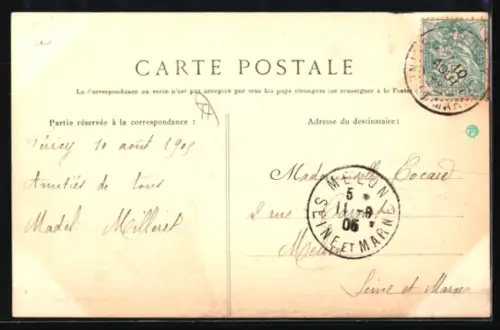 CARTE POSTALE
La Correspondance au recto n'est pas acceptée par tous les pays étrangers (se renseigner à la Poste)
Partie réservée à la correspondance :
Héricy 10 août 1905
Amitiés de tous
Madel. Milleret
Adresse du destinataire :
Mademoiselle Cocard
2 rue
Melun
Seine et Marne
MELUN
5 *
11 - 8
05
SEINE ET MARNE
10
AOUT